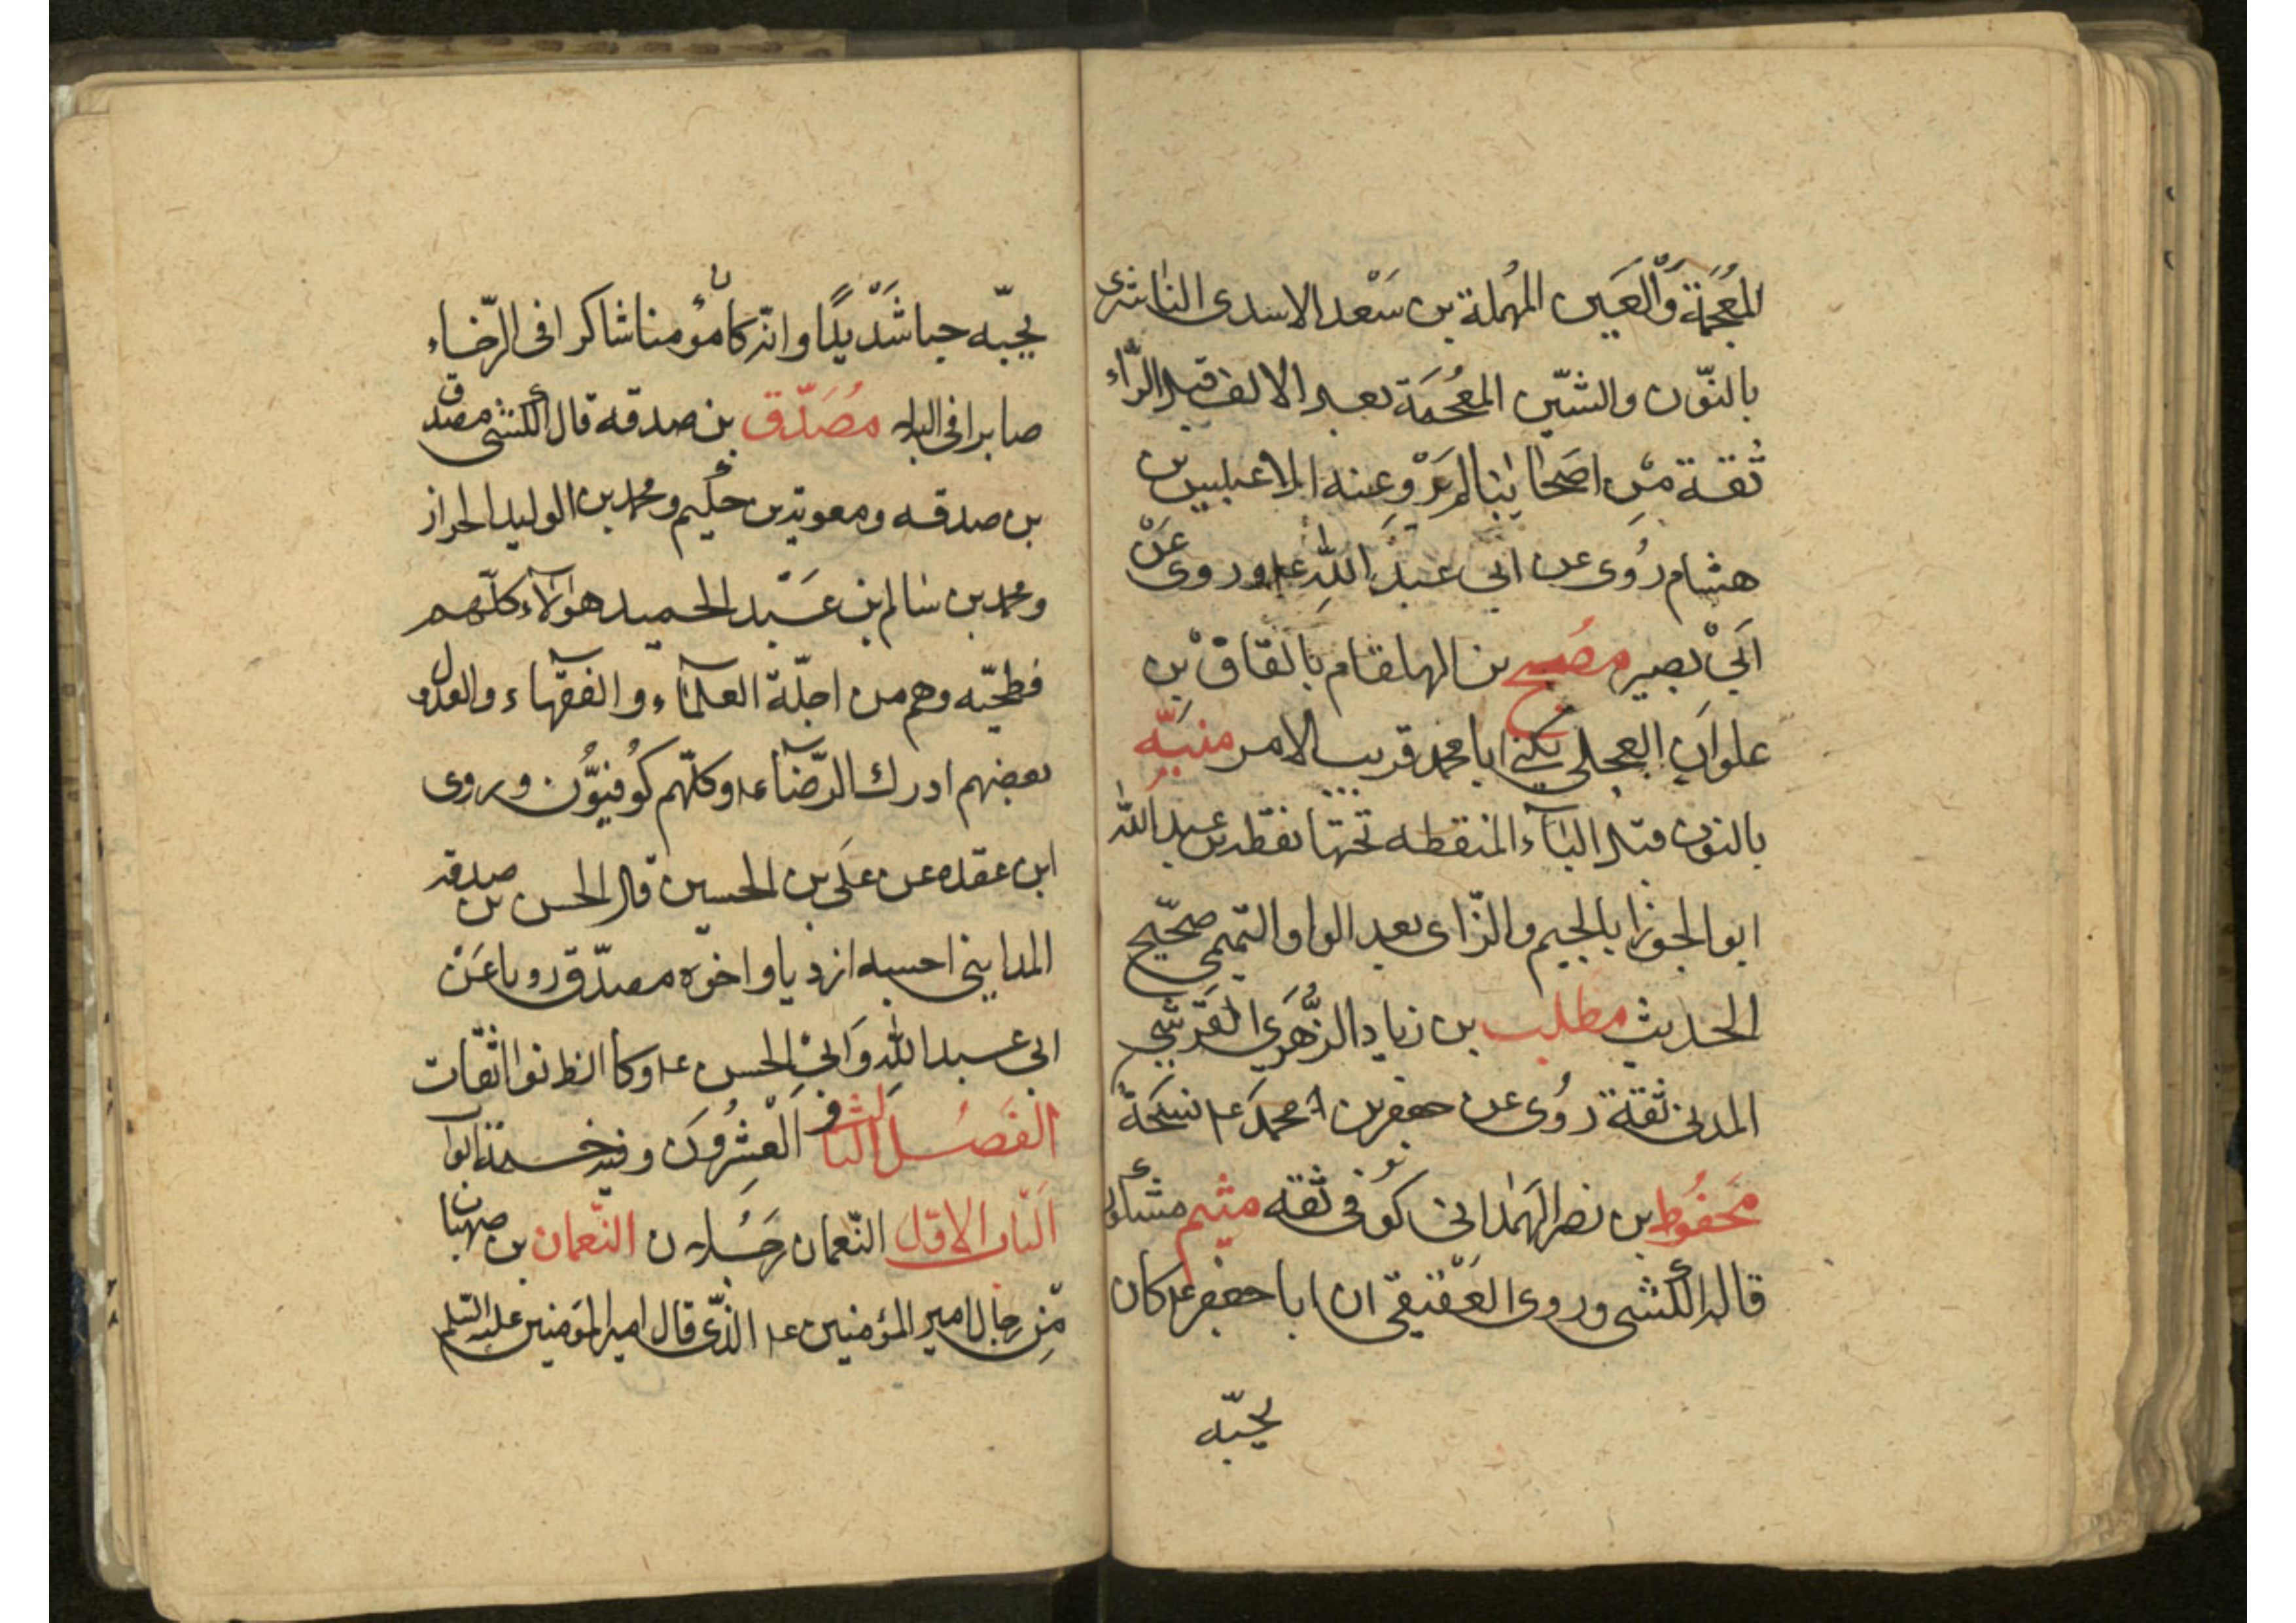 المُعْجَمَة وَالْعَين المُهملة بن سَعْد الاسدى الناشرى
بالنّون والشّين المُعْجَمَة بعد الالف قبل الرّاء
ثقة مِن اصَحابنا لم يَرْو عنه الا عبيس بن
هشام رُوى عن ابى عبدَ اللهِ ع‍ وروى عَنْ
اَبىْ بصير مصبح بن الهلقام بالقاق بْن
علوان العجلى يكنى ابا محمد قريب الامر منبّه
بالنون قبل البآء المنقطه تحتها نقطه بن عبد الله
ابو الجوزا بالجيم والزّاى بعد الواو التّميمى صحّيح
الحديث مطلب بن زياد الزُّهرَى القَرشى
المدنى ثقة رُوى عن جعفر بن محمدَ ع‍ نسَخة
مَحفُوظ بن نصر الهَمْدانى كُوفى ثقه ميثم مشكور
قاله الكشى وروى العَقْيقىّ ان ابا جعفر ع‍ كان
يحبّه
يحبّه حبا شَدْيدًا وانّه كان مؤمنا شاكرا فى الرّخاء
صابرا فى البلاء مُصَدّق بن صدقه قال الكشى مصدق
بن صدقه ومعوية بن حكيم ومحمد بن الوليد الخراز
ومحمد بن سالم بن عَبْد الحميد هولآء كلّهم
فطحيّه وهم من اجلّة العلمآء والفقهآء والعدول و
بعضهم ادرك الرّضا ع‍ وكلّهم كُوفيّوُن وروى
ابن عقده عن عَلى بن الحسين قال الحسن بن صدقه
المداينى احسبه ازديا واخوه مصدّق رويا عَنْ
ابى عبد اللهِ وَابىْ الحسن ع‍ وكانوا ثقات
الفَصُل الثالث و اَلْعشِرُونَ وفيه خمسة ابواب
اَلبّاب الاوّل النّعمان رجَلان النّعمان بن صهبان
مّنِ رجال امير المؤمنين ع‍ الذّى قال امير المؤمنين عليه السّلم